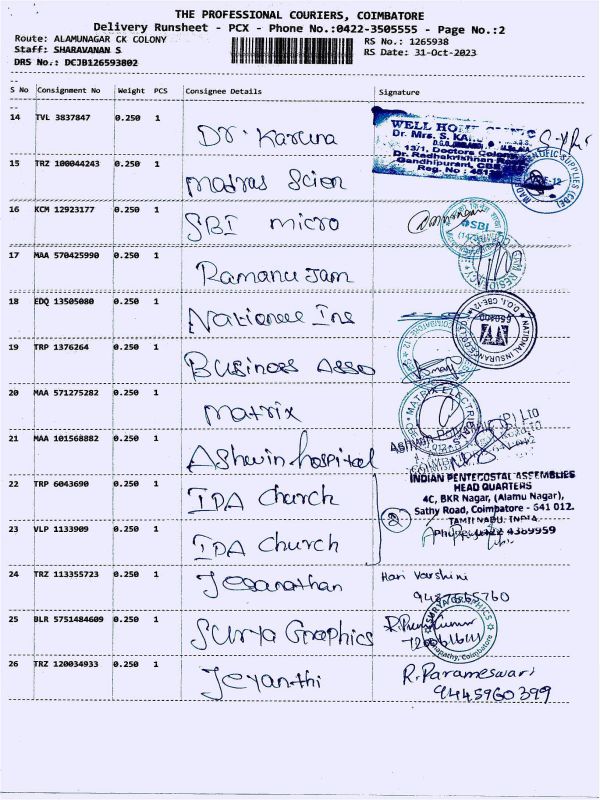 THE PROFESSIONAL COURIERS, COIMBATORE
Delivery Runsheet - PCX - Phone No.:0422-3505555 - Page No.:2
Route: ALAMUNAGAR CK COLONY
RS No.: 1265938
Staff: SHARAVANAN S
RS Date: 31-Oct-2023
DRS No.: DCJB126593802
S No Consignment No Weight PCS Consignee Details Signature
14 TVL 3837847 0.250 1 Dr. Karuna
WELL HOME CLINIC
Dr. Mrs. S.
13/1, Doctors Colony
Dr. Radhakrishnan
Gandhipuram, CBE
Reg. No :
15 TRZ 100044243 0.250 1 Madras Scien
16 KCM 12923177 0.250 1 SBI micro
SBI
17 MAA 570425990 0.250 1 Ramanu Jam
18 EDQ 13505080 0.250 1 Nationall Ins
NATIONAL INSURANCE
19 TRP 1376264 0.250 1 Business Asso
20 MAA 571275282 0.250 1 Matrix
MATRIX ELECTRIC
21 MAA 101568882 0.250 1 Ashwin hospital
(P) Ltd
22 TRP 6043690 0.250 1 IPA church
INDIAN PENTECOSTAL ASSEMBLIES
HEAD QUARTERS
4C, BKR Nagar, (Alamu Nagar),
Sathy Road, Coimbatore - 641 012.
TAMIL NADU, INDIA.
2
23 VLP 1133909 0.250 1 IPA church
24 TRZ 113355723 0.250 1 Jesanathan Hari Varshini
25 BLR 5751484609 0.250 1 Surya Graphics R. Prem Kumar
SURYA GRAPHICS
26 TRZ 120034933 0.250 1 Jeyanthi R. Parameswari
9445960399